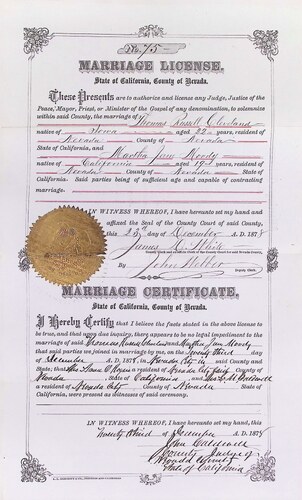 No. 75
MARRIAGE LICENSE.
State of California, County of Nevada.
These Presents are to authorize and license any Judge, Justice of the
Peace, Mayor, Priest, or Minister of the Gospel of any denomination, to solemnize
within said County, the marriage of Thomas Russell
native of Iowa aged 22 years, resident of
Nevada County of Nevada
State of California, and Martha Jane Moody
native of California aged 19 years, resident of
Nevada County of Nevada State of
California. Said parties being of sufficient age and capable of contracting
marriage.
IN WITNESS WHEREOF, I have hereunto set my hand and
affixed the Seal of the County Court of said County,
this 23d day of December A. D. 1878
James
By John Deputy Clerk.
MARRIAGE CERTIFICATE.
State of California, County of Nevada.
I Hereby Certify that I believe the facts stated in the above license to
be true, and that upon due inquiry, there appears to be no legal impediment to the
marriage of said Thomas Russell and Martha Jane Moody
that said parties were joined in marriage by me, on the Twenty third day
of December A. D. 1878, in Nevada City
State of California and
a resident of Nevada City County of Nevada State of
California, were present as witnesses of said ceremony.
IN WITNESS WHEREOF, I have hereunto set my hand, this
Twenty third of December A. D. 1878
John Caldwell
County Judge of
Nevada County
State of California